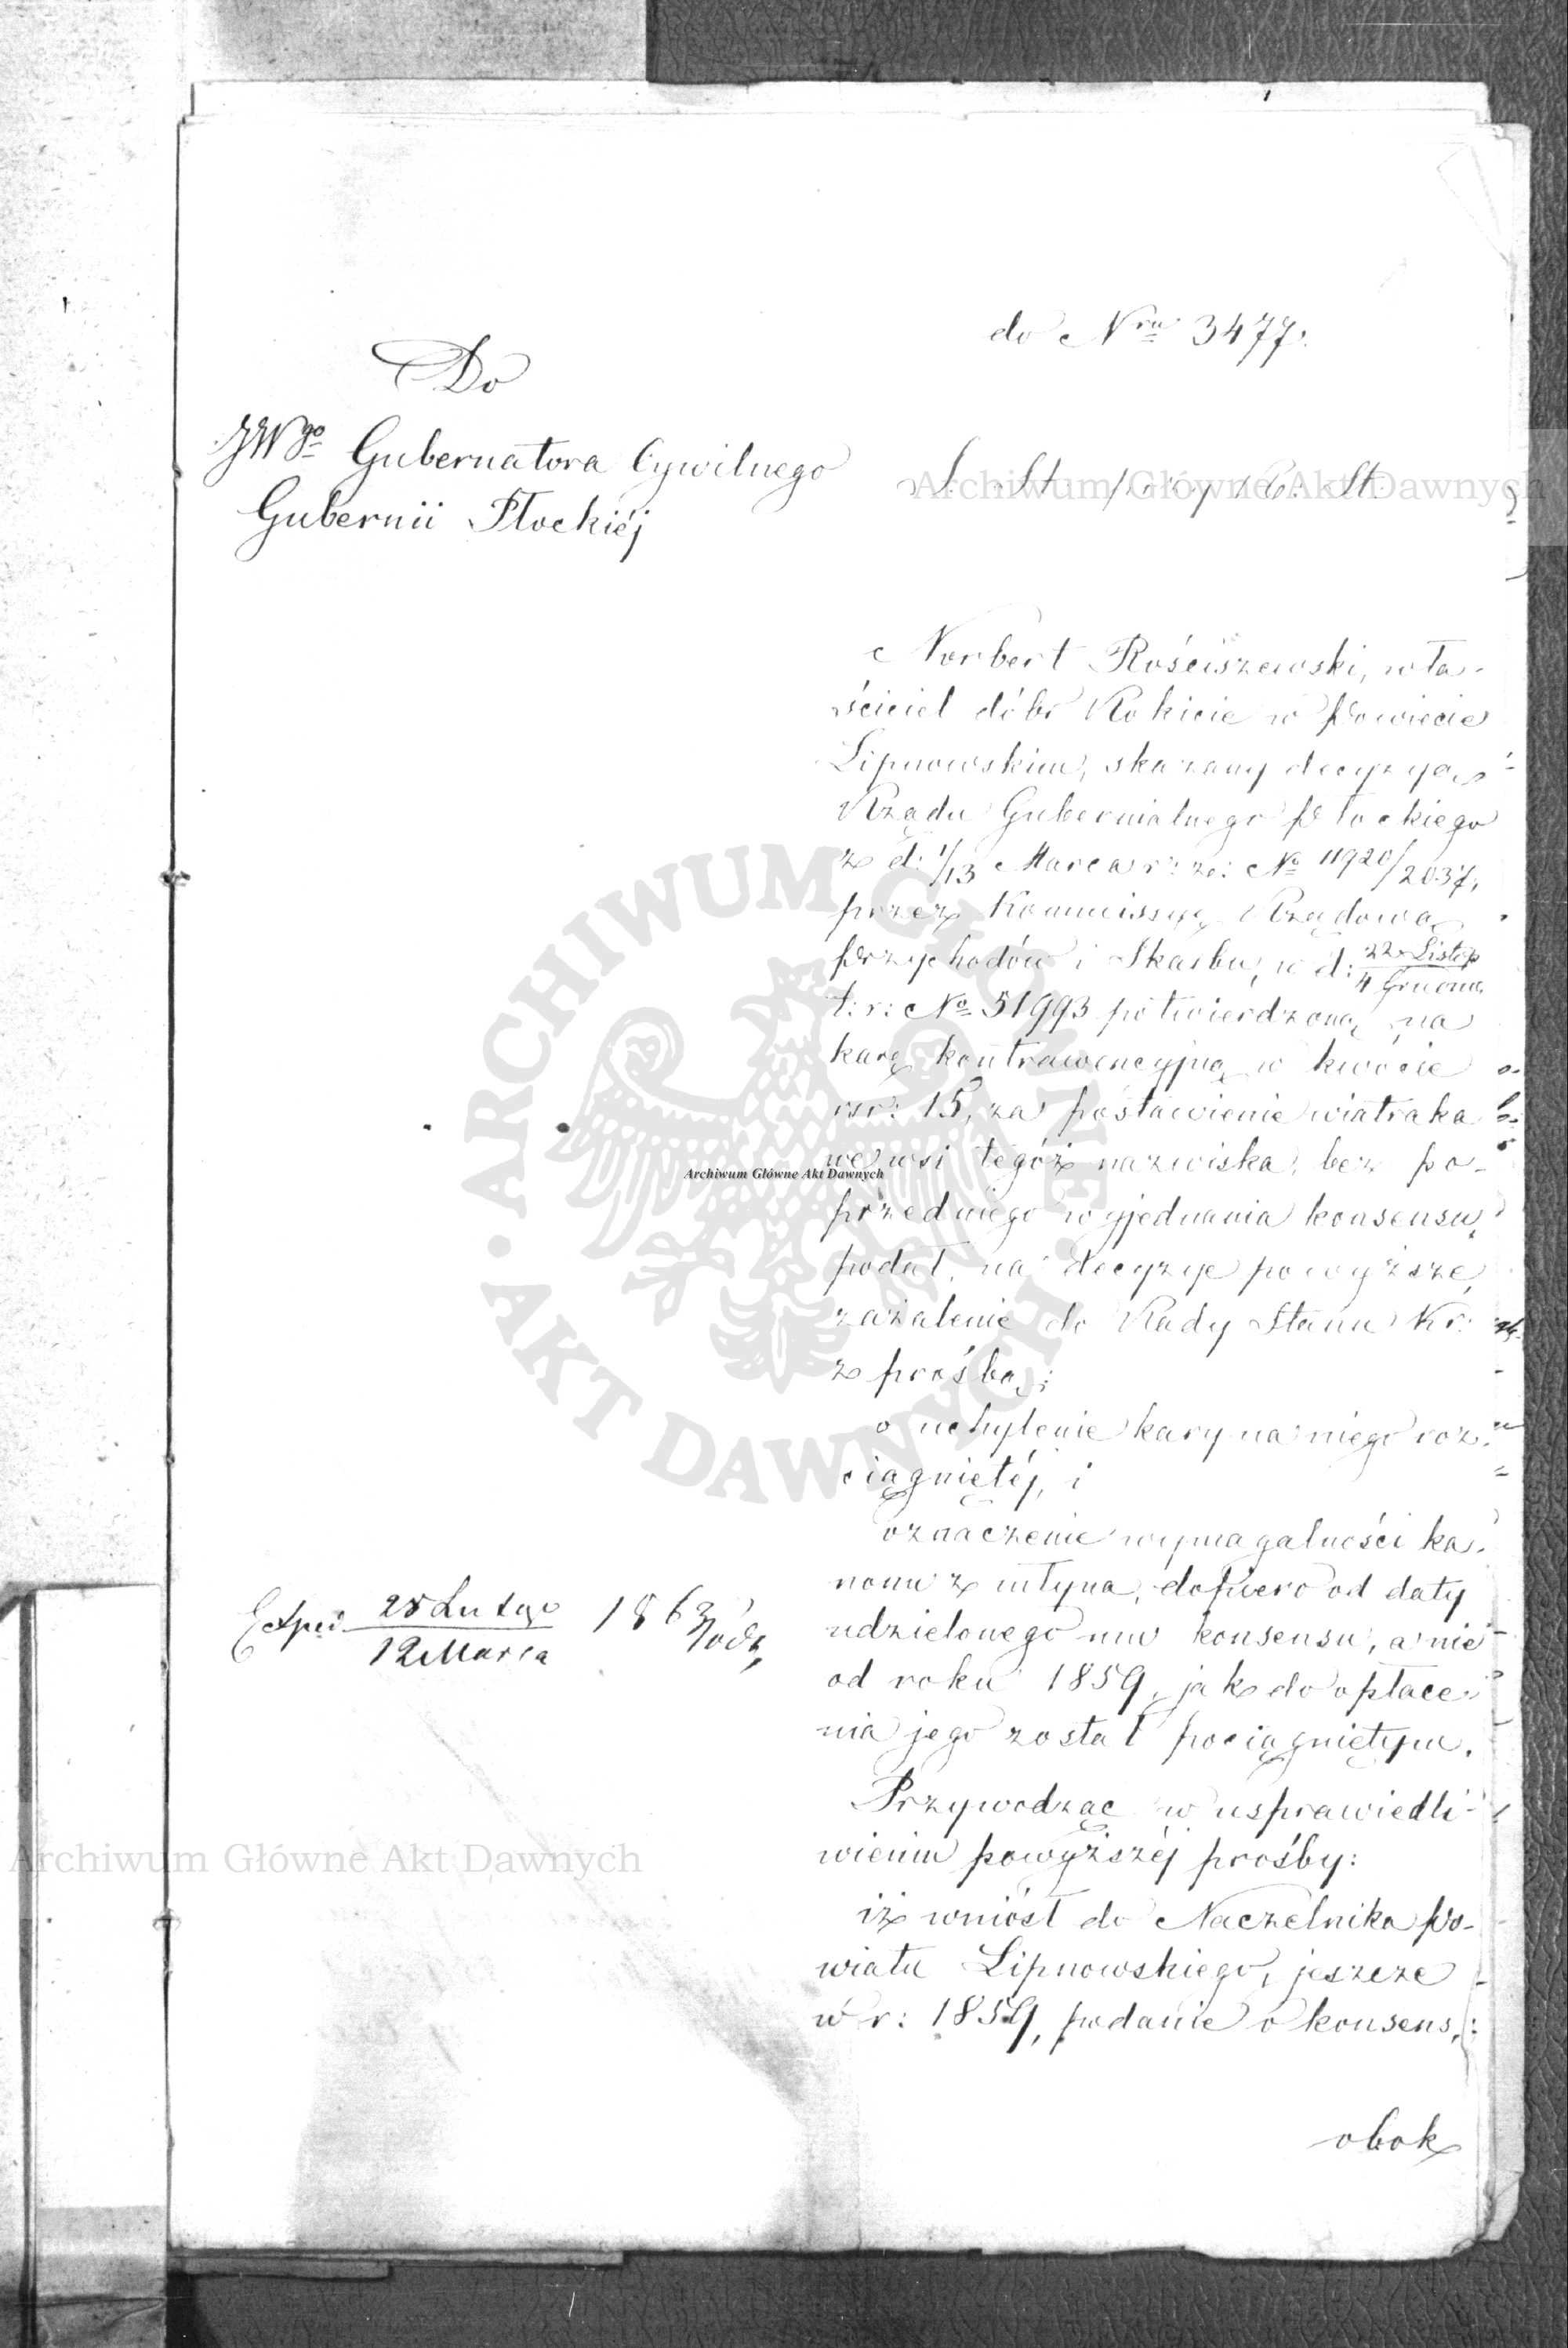 do Nru 3477.
Do
JWgo Gubernatora Cywilnego
Gubernii Płockiéj
S. St. przy R. St.
Norbert Rościszewski, wła-
ściciel dóbr Rokicie w Powiecie
Lipnowskim, skazany decyzyą
Rządu Gubernialnego Płockiego
z d: 1/13 Marca r: z: No 11920/2037,
przez Kommissyę Rządową
Przychodów i Skarbu, w d: 22 Listop / 4 Grudnia
t: r: No 51993 potwierdzoną, na
karę kontrawencyjną w kwocie
rsr: 15, za postawienie wiatraka
we wsi tegóż nazwiska, bez po-
przedniego wyjednania konsensu,
podał, na decyzye powyższe,
zażalenie do Rady Stanu Kr:
z prośbą:
o uchylenie kary na niego roz-
ciągniętéj, i
oznaczenie wymagalności ka-
nonu z młyna, dopiero od daty
udzielonego mu konsensu, a nie
od roku 1859, jak do opłace-
nia jego został pociągniętym.
Przywodząc w usprawiedli-
wieniu powyższéj prośby:
iż wniósł do Naczelnika Po-
wiatu Lipnowskiego, jeszcze
w r: 1859, podanie o konsens,
obok
Exped 28 Lutego / 12 Marca 1863
Archiwum Główne Akt Dawnych
Archiwum Główne Akt Dawnych
Archiwum Główne Akt Dawnych
ARCHIWUM GŁÓWNE AKT DAWNYCH